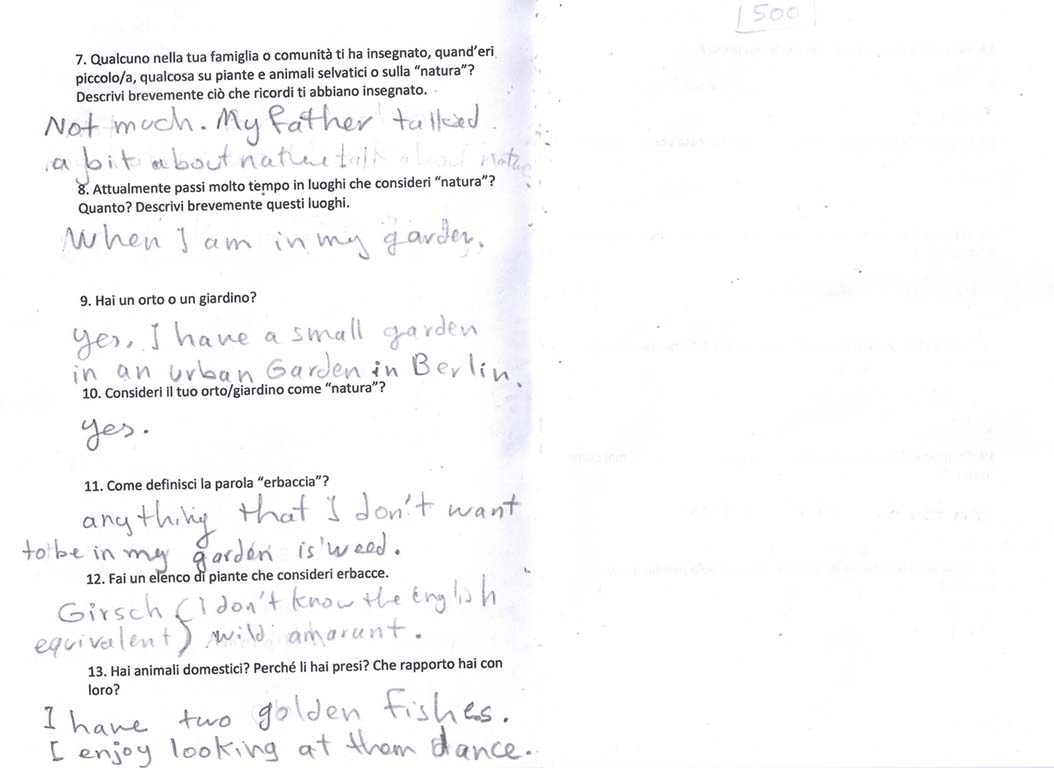 1500
7. Qualcuno nella tua famiglia o comunità ti ha insegnato, quand'eri
piccolo/a, qualcosa su piante e animali selvatici o sulla "natura"?
Descrivi brevemente ciò che ricordi ti abbiano insegnato.
Not much. My father talked
a bit about nature talk about natue
8. Attualmente passi molto tempo in luoghi che consideri "natura"?
Quanto? Descrivi brevemente questi luoghi.
When I am in my garden.
9. Hai un orto o un giardino?
yes, I have a small garden
in an urban Garden in Berlin.
10. Consideri il tuo orto/giardino come "natura"?
yes.
11. Come definisci la parola "erbaccia"?
anything that I don't want
to be in my garden is weed.
12. Fai un elenco di piante che consideri erbacce.
Girsch (I don't know the English
equivalent) wild amarant.
13. Hai animali domestici? Perché li hai presi? Che rapporto hai con
loro?
I have two golden fishes.
I enjoy looking at them dance.